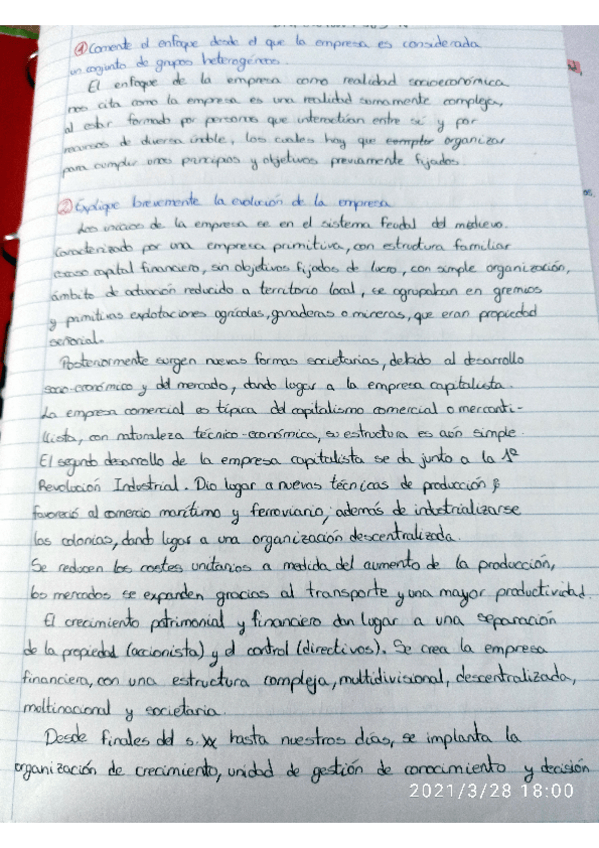 ① Comente el enfoque desde el que la empresa es considerada
un conjunto de grupos heterogéneos.
El enfoque de la empresa como realidad socioeconómica
nos cita como la empresa es una realidad sumamente compleja,
al estar formado por personas que interactúan entre sí y por
recursos de diversa índole, los cuales hay que organizar
para cumplir unos principios y objetivos previamente fijados.
② Explique brevemente la evolución de la empresa
Los inicios de la empresa se en el sistema feudal del medievo.
Caracterizado por una empresa primitiva, con estructura familiar
escaso capital financiero, sin objetivos fijados de lucro, con simple organización,
ámbito de actuación reducido a territorio local, se agrupaban en gremios
y primitivas explotaciones agrícolas, ganaderas o mineras, que eran propiedad
señorial.
Posteriormente surgen nuevas formas societarias, debido al desarrollo
socio-económico y del mercado, dando lugar a la empresa capitalista.
La empresa comercial es típica del capitalismo comercial o mercanti-
lista, con naturaleza técnico-económica, su estructura es aún simple.
El segundo desarrollo de la empresa capitalista se da junto a la 1ª
Revolución Industrial. Dio lugar a nuevas técnicas de producción y
favoreció al comercio marítimo y ferroviario, además de industrializarse
las colonias, dando lugar a una organización descentralizada.
Se reducen los costes unitarios a medida del aumento de la producción,
los mercados se expanden gracias al transporte y una mayor productividad.
El crecimiento patrimonial y financiero dan lugar a una separación
de la propiedad (accionista) y el control (directivos). Se crea la empresa
financiera, con una estructura compleja, multidivisional, descentralizada,
multinacional y societaria.
Desde finales del s.XX hasta nuestros días, se implanta la
organización de crecimiento, unidad de gestión de conocimiento y decisión
2021/3/28 18:00